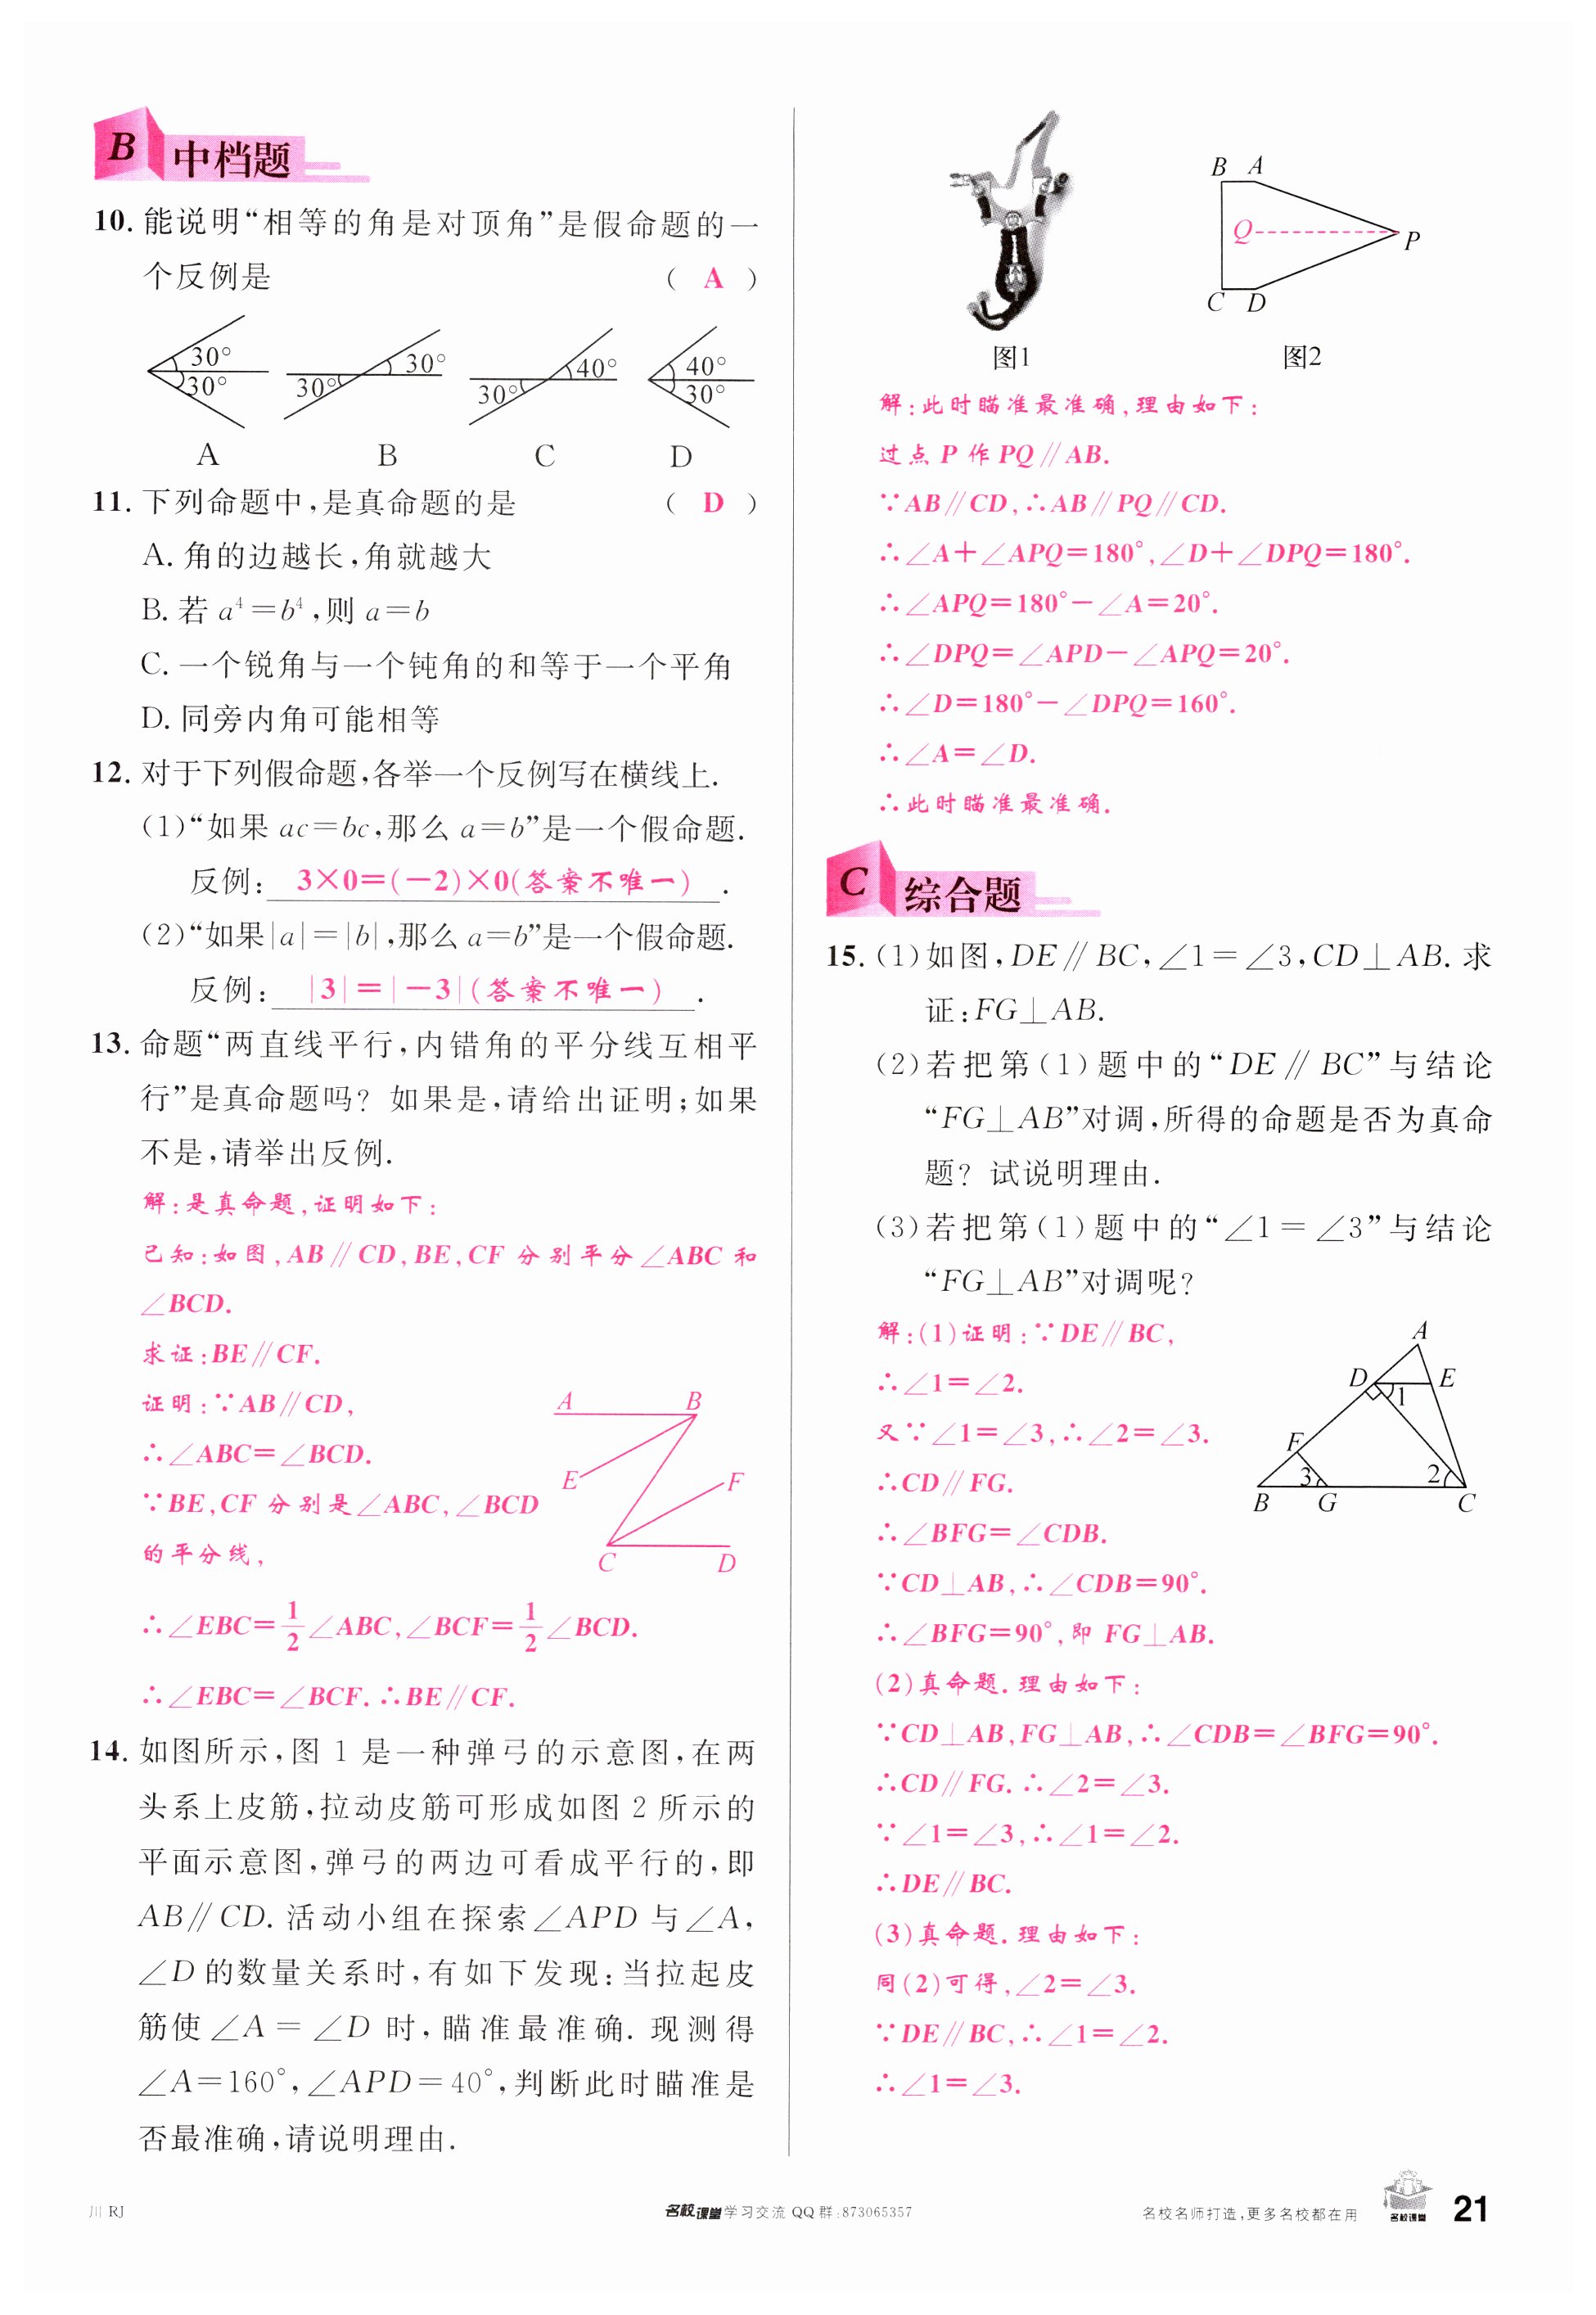 B 中档题
10. 能说明“相等的角是对顶角”是假命题的一
个反例是 ( A )
30° 30° 30° 30° 40° 30° 40° 30°
A B C D
11. 下列命题中,是真命题的是 ( D )
A. 角的边越长,角就越大
B. 若 a⁴=b⁴,则 a=b
C. 一个锐角与一个钝角的和等于一个平角
D. 同旁内角可能相等
12. 对于下列假命题,各举一个反例写在横线上.
(1)“如果 ac=bc,那么 a=b”是一个假命题.
反例: 3×0=(-2)×0(答案不唯一) .
(2)“如果|a|=|b|,那么 a=b”是一个假命题.
反例: |3|=|-3|(答案不唯一) .
13. 命题“两直线平行,内错角的平分线互相平
行”是真命题吗? 如果是,请给出证明;如果
不是,请举出反例.
解:是真命题,证明如下:
已知:如图,AB∥CD,BE,CF 分别平分∠ABC 和
∠BCD.
求证:BE∥CF.
证明:∵AB∥CD,
∴∠ABC=∠BCD.
∵BE,CF 分别是∠ABC,∠BCD
的平分线,
A B E F C D
∴∠EBC=1/2∠ABC,∠BCF=1/2∠BCD.
∴∠EBC=∠BCF.∴BE∥CF.
14. 如图所示,图 1 是一种弹弓的示意图,在两
头系上皮筋,拉动皮筋可形成如图 2 所示的
平面示意图,弹弓的两边可看成平行的,即
AB∥CD. 活动小组在探索∠APD 与∠A,
∠D 的数量关系时,有如下发现:当拉起皮
筋使∠A=∠D 时,瞄准最准确. 现测得
∠A=160°,∠APD=40°,判断此时瞄准是
否最准确,请说明理由.
B A
Q P
C D
图1 图2
解:此时瞄准最准确,理由如下:
过点 P 作 PQ∥AB.
∵AB∥CD,∴AB∥PQ∥CD.
∴∠A+∠APQ=180°,∠D+∠DPQ=180°.
∴∠APQ=180°-∠A=20°.
∴∠DPQ=∠APD-∠APQ=20°.
∴∠D=180°-∠DPQ=160°.
∴∠A=∠D.
∴此时瞄准最准确.
C 综合题
15. (1)如图,DE∥BC,∠1=∠3,CD⊥AB. 求
证:FG⊥AB.
(2)若把第(1)题中的“DE∥BC”与结论
“FG⊥AB”对调,所得的命题是否为真命
题? 试说明理由.
(3)若把第(1)题中的“∠1=∠3”与结论
“FG⊥AB”对调呢?
解:(1)证明:∵DE∥BC,
∴∠1=∠2.
又∵∠1=∠3,∴∠2=∠3.
∴CD∥FG.
∴∠BFG=∠CDB.
A D E 1 F 3 2 B G C
∵CD⊥AB,∴∠CDB=90°.
∴∠BFG=90°,即 FG⊥AB.
(2)真命题.理由如下:
∵CD⊥AB,FG⊥AB,∴∠CDB=∠BFG=90°.
∴CD∥FG.∴∠2=∠3.
∵∠1=∠3,∴∠1=∠2.
∴DE∥BC.
(3)真命题.理由如下:
同(2)可得,∠2=∠3.
∵DE∥BC,∴∠1=∠2.
∴∠1=∠3.
川 RJ
名校课堂学习交流 QQ 群:873065357
名校名师打造,更多名校都在用
名校课堂
21